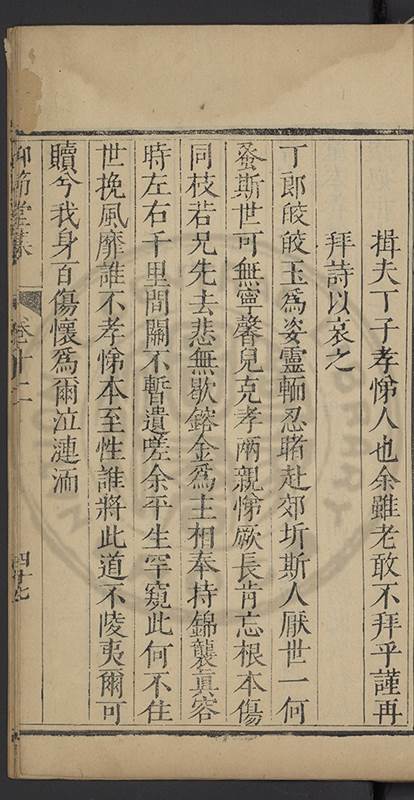 揖夫丁子孝悌人也余雖老敢不拜乎謹再
拜詩以哀之
丁郎皎皎玉為姿靈輀忍睹赴郊圻斯人厭世一何
蚤斯世可無寧馨兒克孝兩親悌厥長肯忘根本傷
同枝若兄先去悲無歇鎔金為主相奉持錦襲真容
時左右千里間關不暫遺嗟余平生罕窺此何不住
世挽風靡誰不孝悌本至性誰將此道不陵夷爾可
贖兮我身百傷懷為爾泣漣洏
仰節堂集
卷十二
四十七